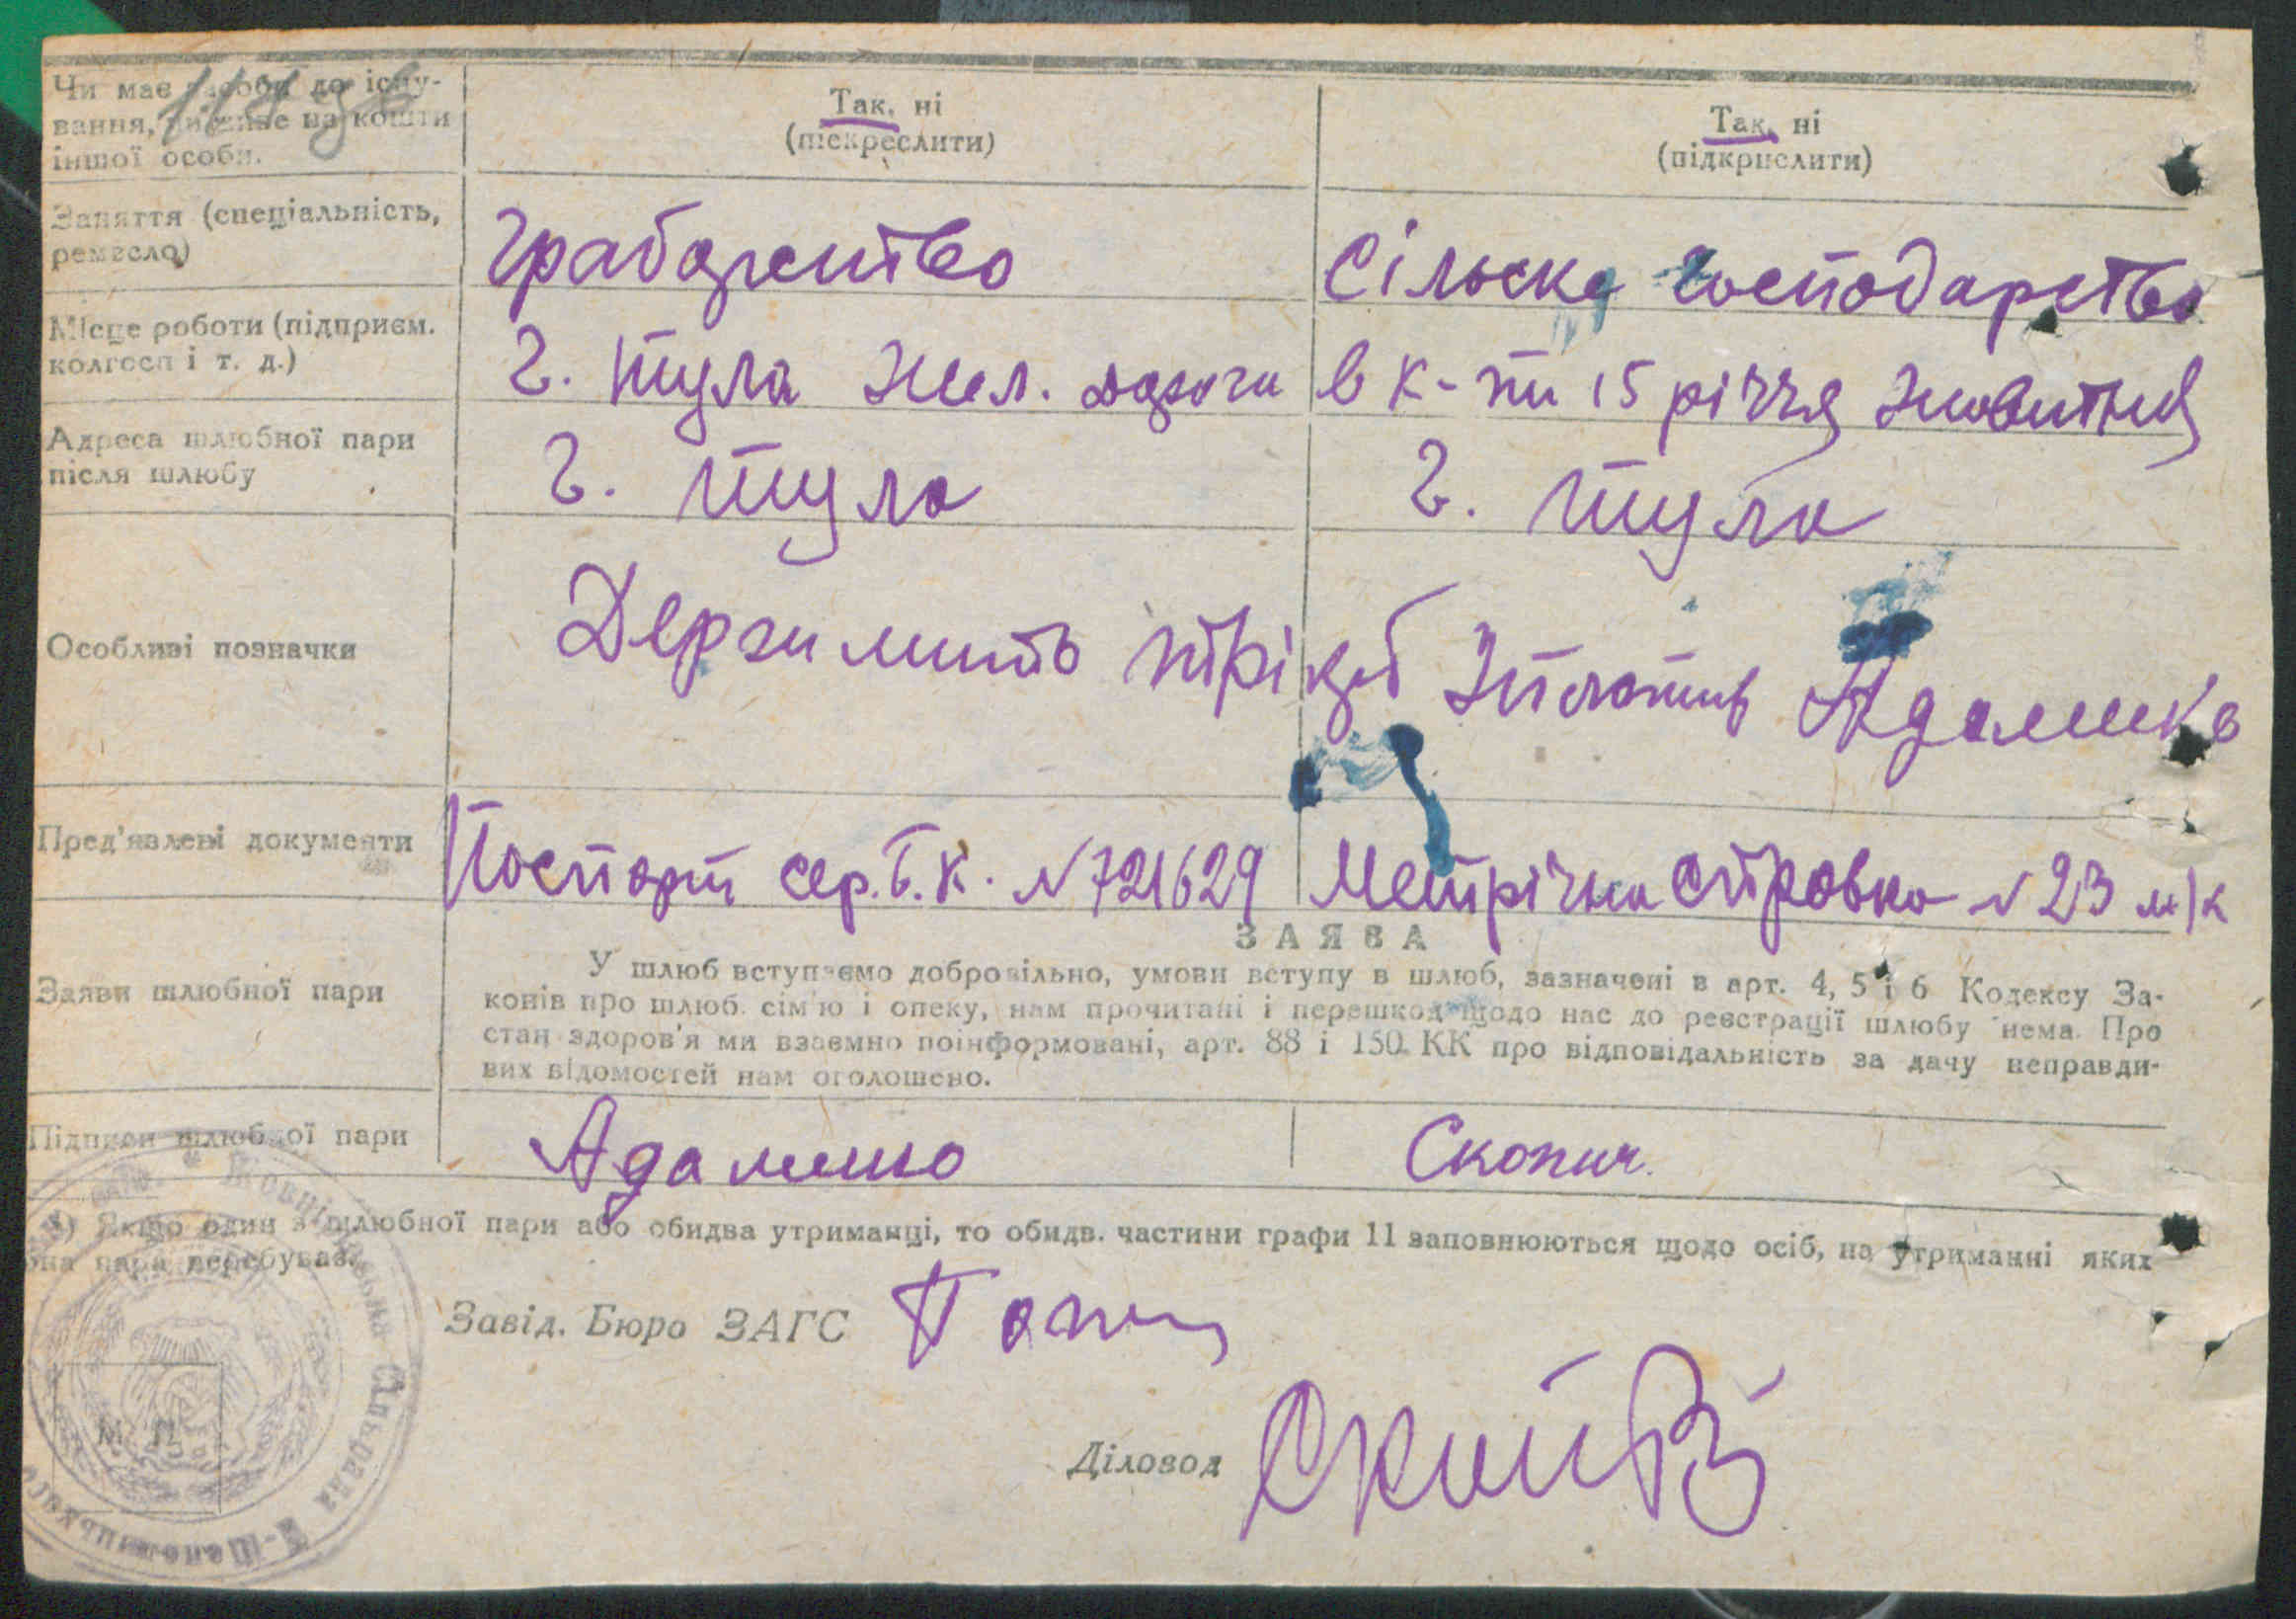 Чи має засоби до існу-
вання, чи живе на кошти
іншої особи.
Так, ні
(піскреслити)
Так, ні
(підкрислити)
Заняття (спеціальність,
ремесло)
Грабарство
Сільске господарство
Місце роботи (підприєм.
колгосп і т. д.)
г. Тула Жел. дорога
в к-пі 15 річчя Жовтня
Адреса шлюбної пари
після шлюбу
г. Тула
г. Тула
Особливі позначки
Адаменко
Пред'явлені документи
Поспорт сер. Б.К. №721629
Метрічна № 23
Заяви шлюбної пари
ЗАЯВА
У шлюб вступаємо добровільно, умови вступу в шлюб, зазначені в арт. 4, 5 і 6 Кодексу За-
конів про шлюб. сім'ю і опеку, нам прочитані і перешкод щодо нас до реєстрації шлюбу нема. Про
стан здоров'я ми взаємно поінформовані, арт. 88 і 150 КК про відповідальність за дачу неправди-
вих відомостей нам оголошено.
Підписи шлюбної пари
Скопич.
1) Якщо один з шлюбної пари або обидва утриманці, то обидв. частини графи 11 заповнюються щодо осіб, на утриманні яких
пара перебуває.
Завід. Бюро ЗАГС
Діловод
М. П.
Сільрада